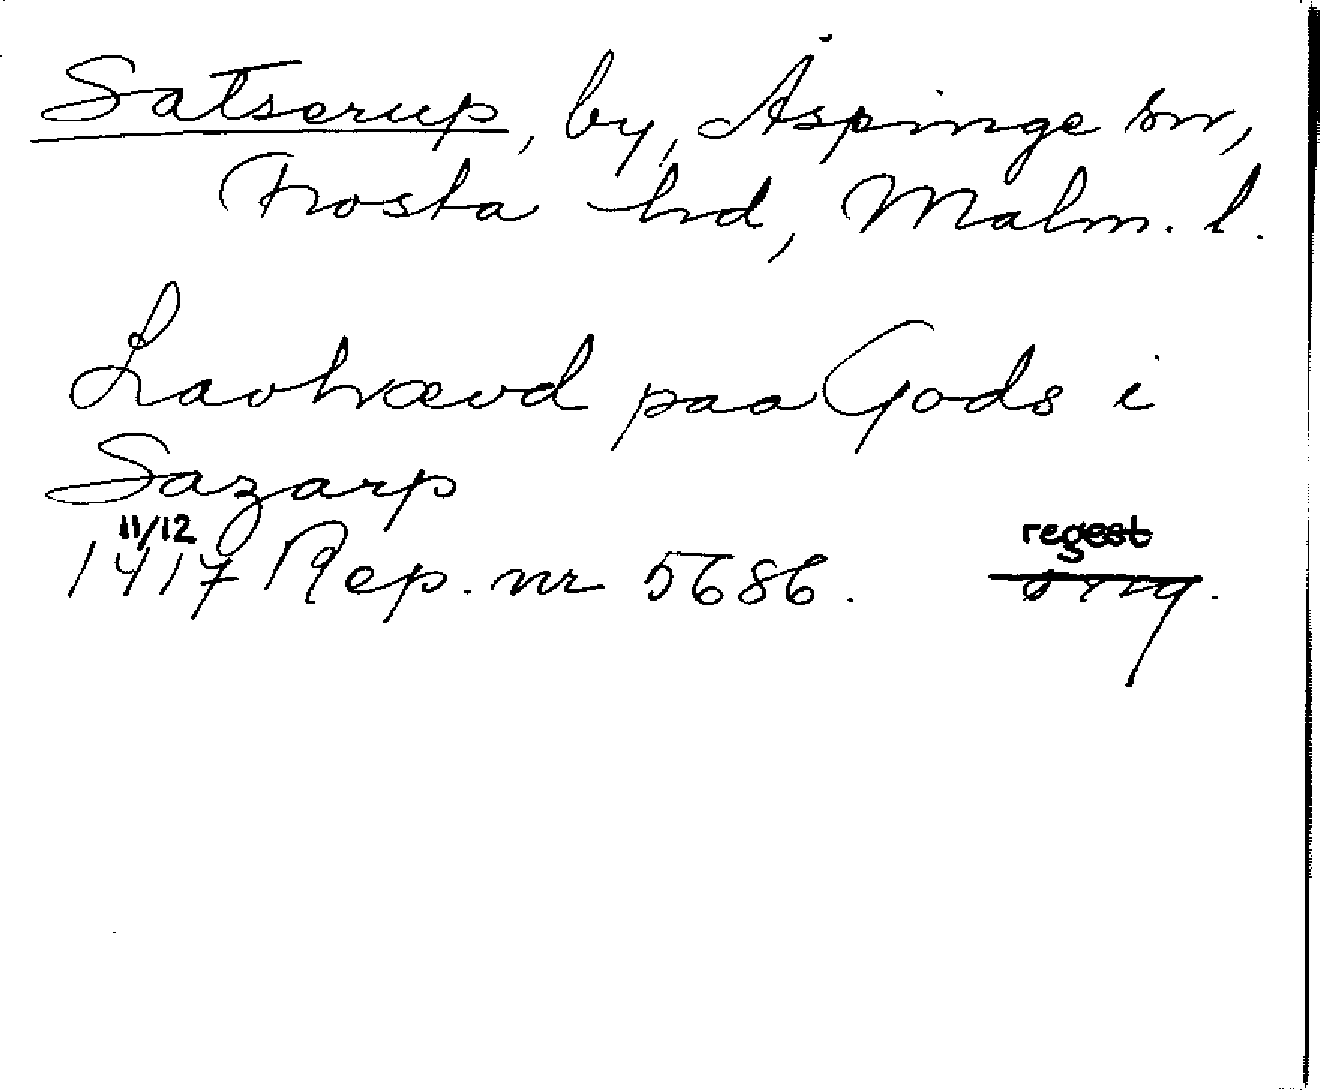 Satserup, by, Äspinge sn,
Frosta hd, Malm. l.
Lavhævd paa Gods i
Sazarp
11/12 regest
1417 Rep. nr 5686. orig.